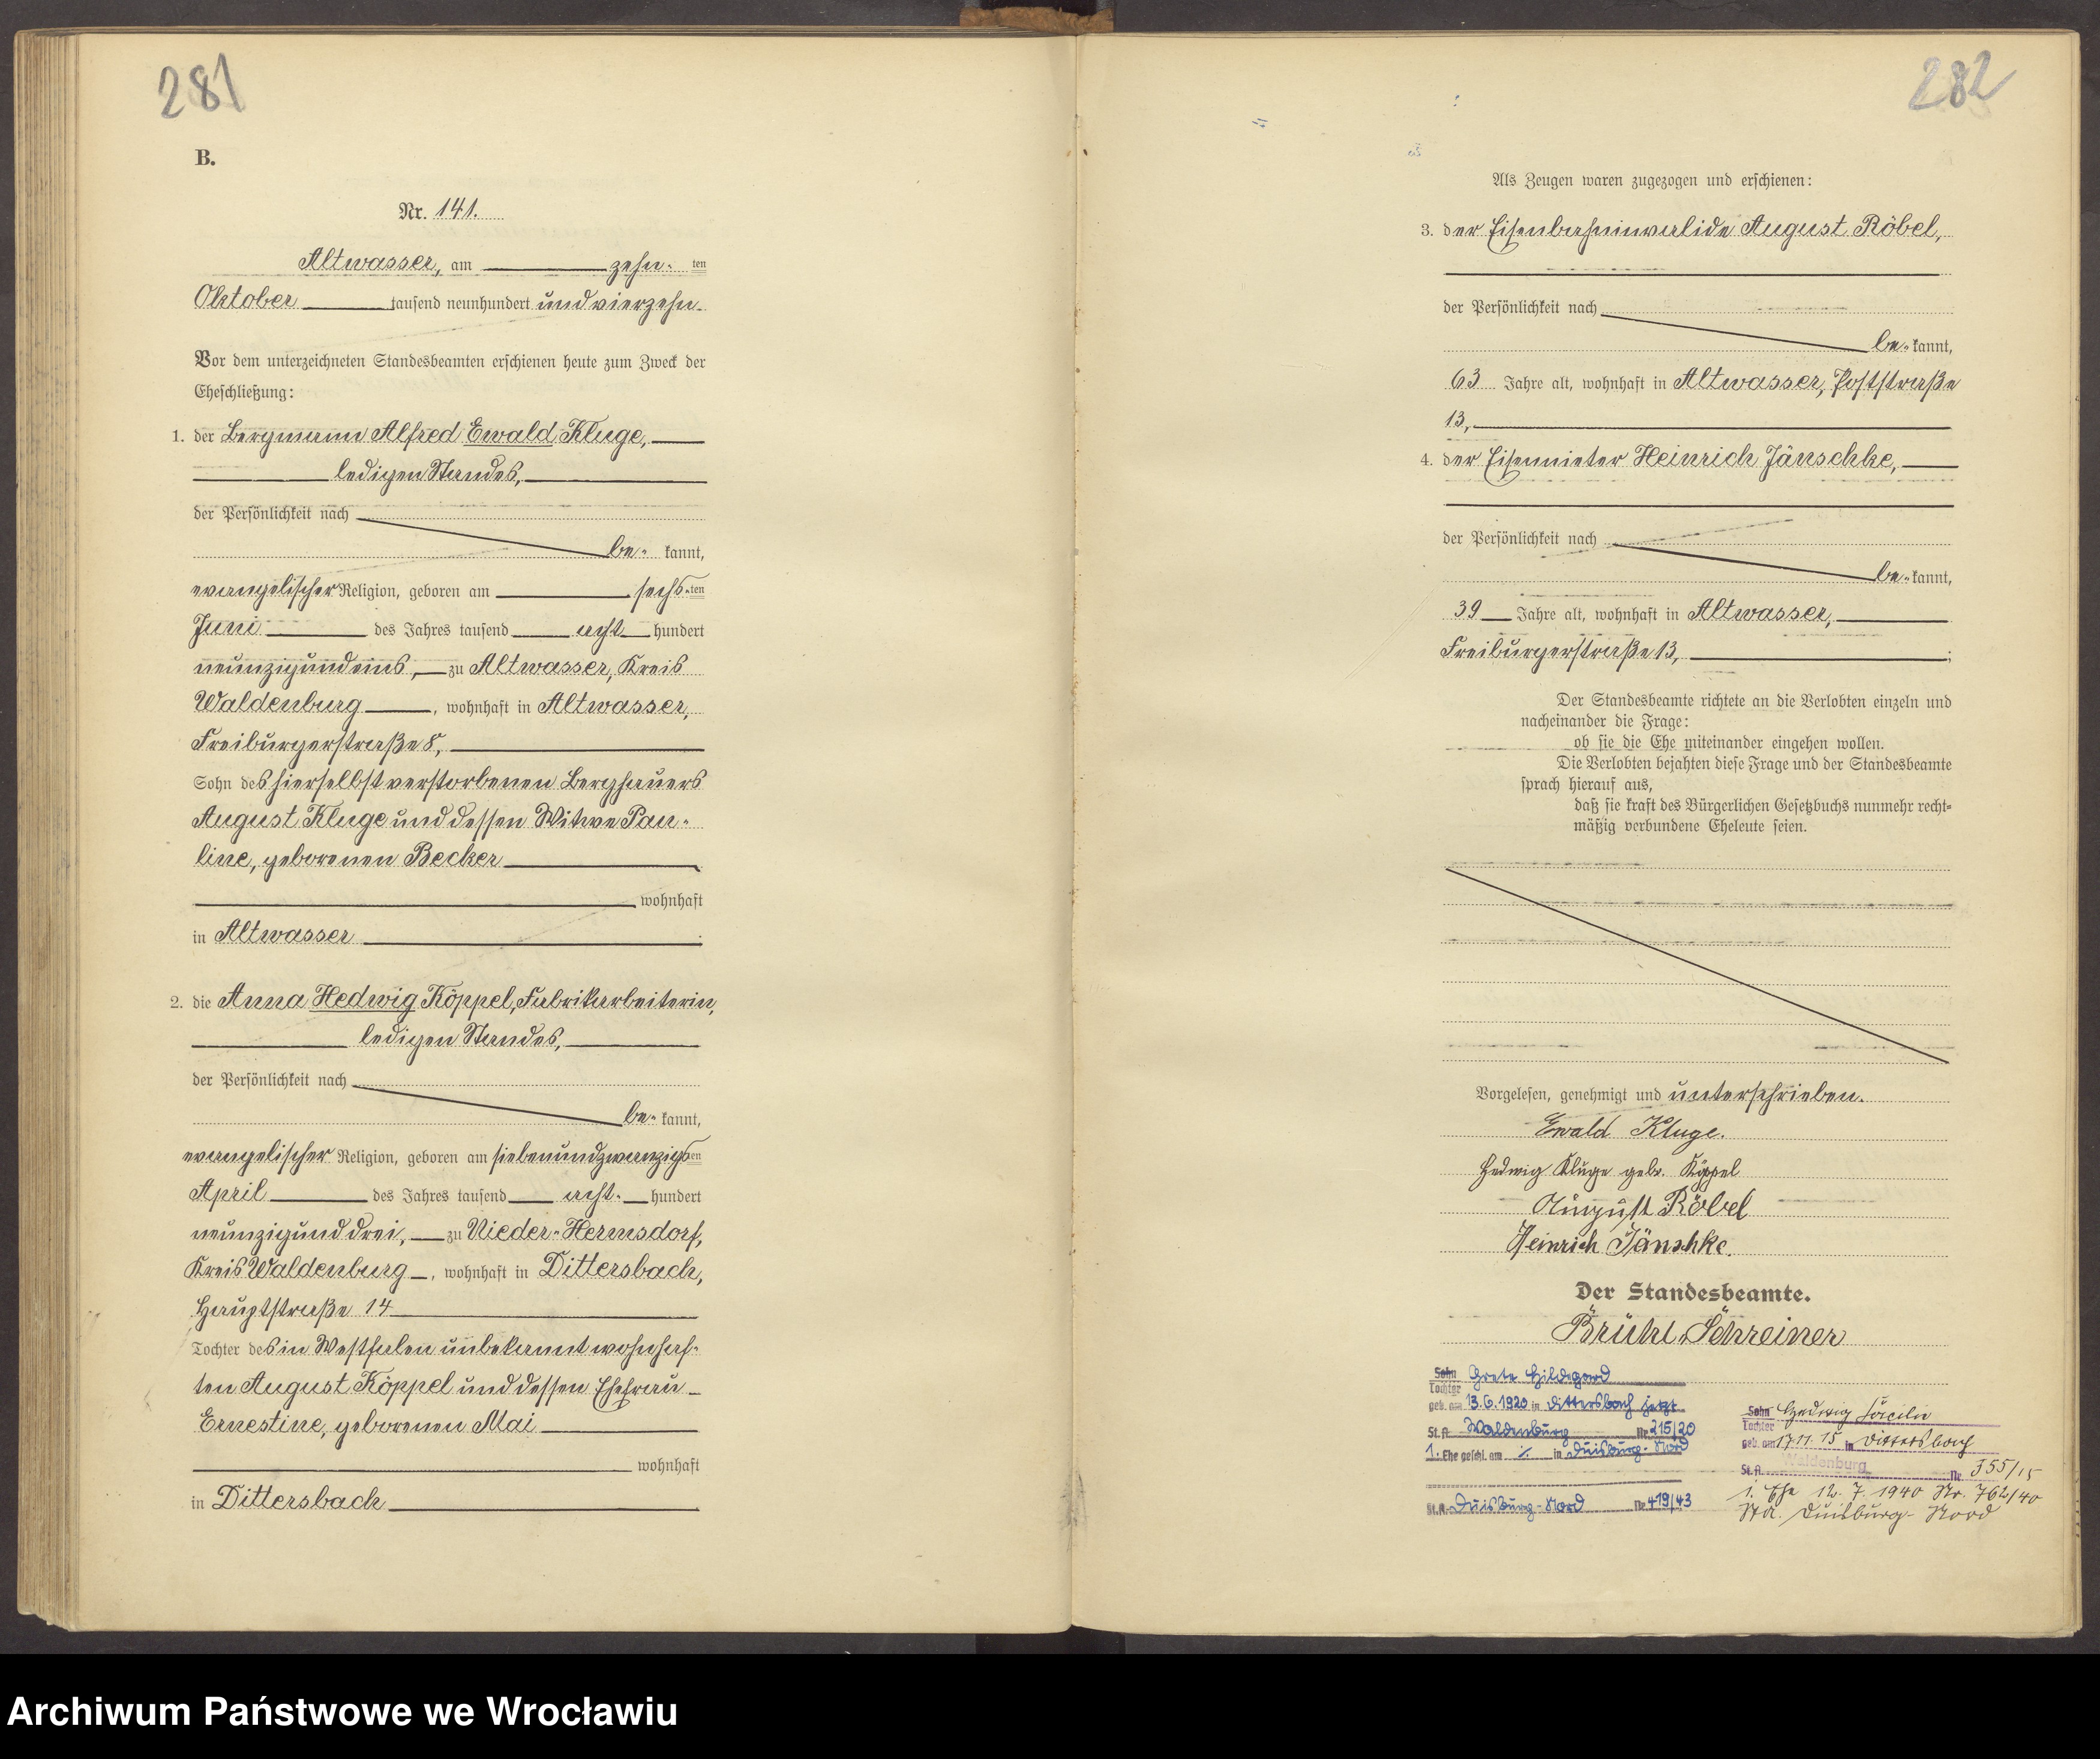 281
B.
Nr. 141.
Altwasser, am zehn-ten
Oktober tausend neunhundert und vierzehn.
Vor dem unterzeichneten Standesbeamten erschienen heute zum Zweck der
Eheschließung:
1. der Bergmann Alfred Ewald Kluge,
ledigen Standes,
der Persönlichkeit nach
be- kannt,
evangelischer Religion, geboren am sechs-ten
Juni des Jahres tausend acht hundert
neunzigundeins, zu Altwasser, Kreis
Waldenburg, wohnhaft in Altwasser,
Freiburgerstraße 8,
Sohn des hierselbst verstorbenen Berghauers
August Kluge und dessen Witwe Pau-
line, geborenen Becker
wohnhaft
in Altwasser.
2. die Anna Hedwig Köppel, Fabrikarbeiterin,
ledigen Standes,
der Persönlichkeit nach
be- kannt,
evangelischer Religion, geboren am siebenundzwanzigsten
April des Jahres tausend acht- hundert
neunzigunddrei, zu Nieder-Hermsdorf,
Kreis Waldenburg, wohnhaft in Dittersbach,
Hauptstraße 14
Tochter des in Westfalen unbekannt wohnhaf-
ten August Köppel und dessen Ehefrau
Ernestine, geborenen Mai
wohnhaft
in Dittersbach
282
Als Zeugen waren zugezogen und erschienen:
3. der Eisenbahninvalide August Röbel,
der Persönlichkeit nach
be- kannt,
63 Jahre alt, wohnhaft in Altwasser, Poststraße
13,
4. der Eisennieter Heinrich Jänschke,
der Persönlichkeit nach
be- kannt,
39 Jahre alt, wohnhaft in Altwasser,
Freiburgerstraße 13,;
Der Standesbeamte richtete an die Verlobten einzeln und
nacheinander die Frage:
ob sie die Ehe miteinander eingehen wollen.
Die Verlobten bejahten diese Frage und der Standesbeamte
sprach hierauf aus,
daß sie kraft des Bürgerlichen Gesetzbuchs nunmehr recht-
mäßig verbundene Eheleute seien.
Vorgelesen, genehmigt und unterschrieben.
Ewald Kluge.
Hedwig Kluge geb. Köppel
August Röbel
Heinrich Jänschke.
Der Standesbeamte.
Schreiner
Sohn
Tochter Grete Hildegard
geb. am 13.6.1920 in Dittersbach jetzt
St.A. Waldenburg Nr. 215/20
1. Ehe geschl. am ./. in Duisburg-Nord
St.A. Duisburg-Nord Nr. 419/43
Sohn
Tochter Hedwig
geb. am 17.11.15 in Dittersbach
St.A. Waldenburg Nr. 355/15
1. Ehe 12.7.1940 Nr. 762/40
StA. Duisburg-Nord
Archiwum Państwowe we Wrocławiu